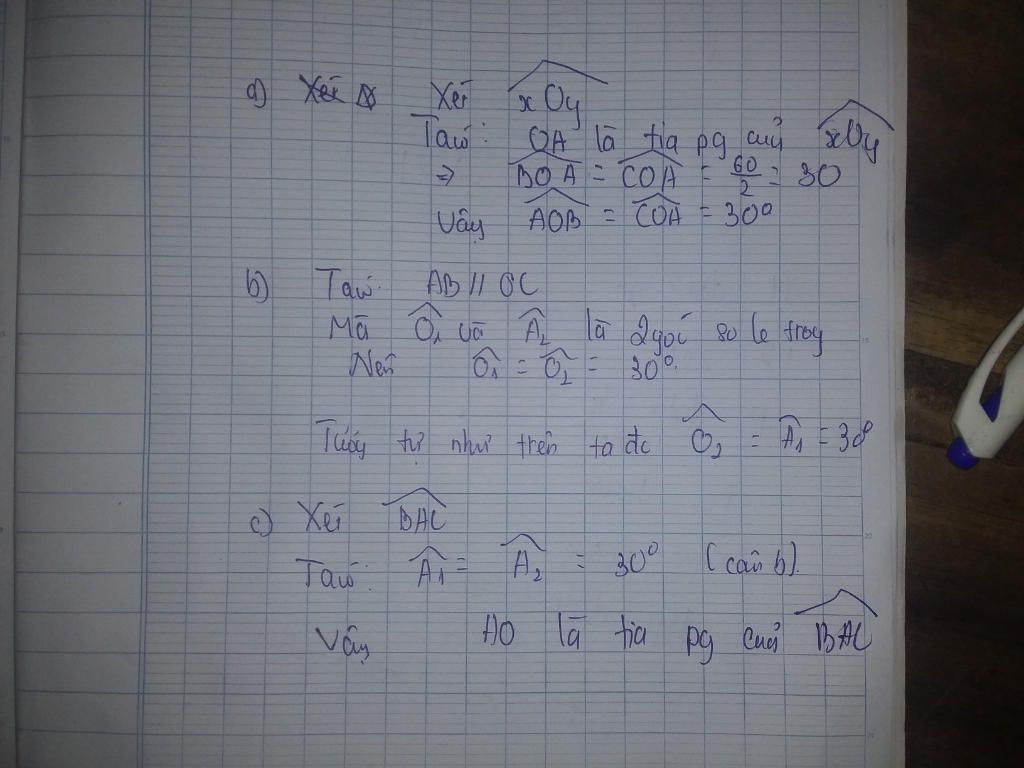 a) Xét Δ Xét xOy
Ta có: OA là tia pg của xOy
=> BOA = COA = 60/2 = 30
Vậy AOB = COA = 30°
b) Ta có: AB // OC
Mà O₁ và A₂ là 2 góc so le trog
Nên O₁ = O₂ = 30°.
Tươg tự như trên ta đc O₂ = A₁ = 30°
c) Xét BAC
Ta có: A₁ = A₂ = 30° (câu b).
Vậy AO là tia pg của BAC